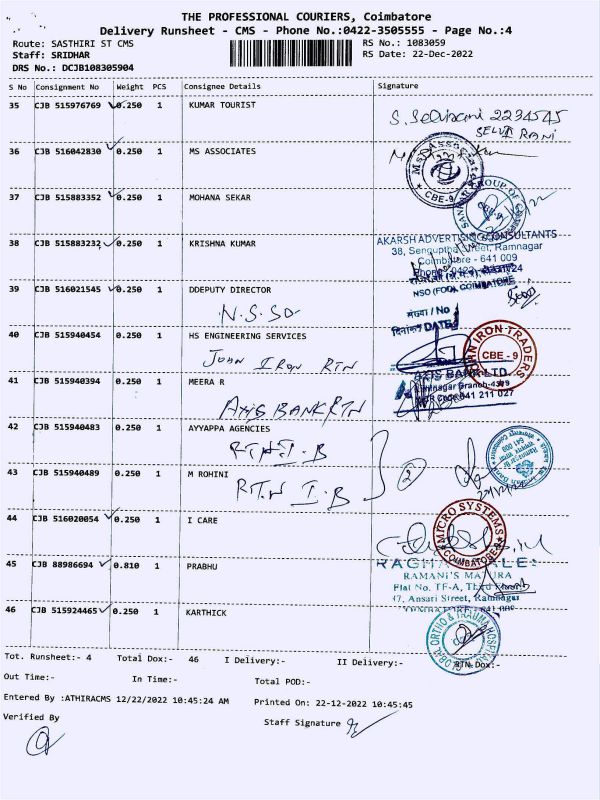 THE PROFESSIONAL COURIERS, Coimbatore
Delivery Runsheet - CMS - Phone No.:0422-3505555 - Page No.:4
Route: SASTHIRI ST CMS RS No.: 1083059
Staff: SRIDHAR RS Date: 22-Dec-2022
DRS No.: DCJB108305904
S No Consignment No Weight PCS Consignee Details Signature
35 CJB 515976769 0.250 1 KUMAR TOURIST
S. Selvarani 2234545
SELVA RANI
36 CJB 516042830 0.250 1 MS ASSOCIATES
CBE-9
37 CJB 515883352 0.250 1 MOHANA SEKAR
GROUP OF
CBE-9
38 CJB 515883232 0.250 1 KRISHNA KUMAR
AKARSH ADVERTISING CONSULTANTS
38, Senguptha Street, Ramnagar
Coimbatore - 641 009
39 CJB 516021545 0.250 1 DDEPUTY DIRECTOR
NSO (FOD), COIMBATORE
N.S.SO
संख्या / No
दिनांक DATE
40 CJB 515940454 0.250 1 HS ENGINEERING SERVICES
JOHN IRON RTN
JOHN IRON TRADERS
CBE - 9
41 CJB 515940394 0.250 1 MEERA R
AXIS BANK LTD.
Ramnagar Branch
641 211 027
AXIS BANK RTN
42 CJB 515940483 0.250 1 AYYAPPA AGENCIES
RTN I.B
2
43 CJB 515940489 0.250 1 M ROHINI
RTN I.B
44 CJB 516020054 0.250 1 I CARE
MICRO SYSTEMS
COIMBATORE
45 CJB 88986694 0.810 1 PRABHU
RAMANI'S MAYURA
Flat No. TF-A, Third
37, Ansari Street, Ramnagar
46 CJB 515924465 0.250 1 KARTHICK
GLOBAL ORTHO & TRAUMA HOSPITAL
Tot. Runsheet:- 4 Total Dox:- 46 I Delivery:- II Delivery:- RTN Dox:-
Out Time:- In Time:- Total POD:-
Entered By :ATHIRACMS 12/22/2022 10:45:24 AM Printed On: 22-12-2022 10:45:45
Verified By Staff Signature